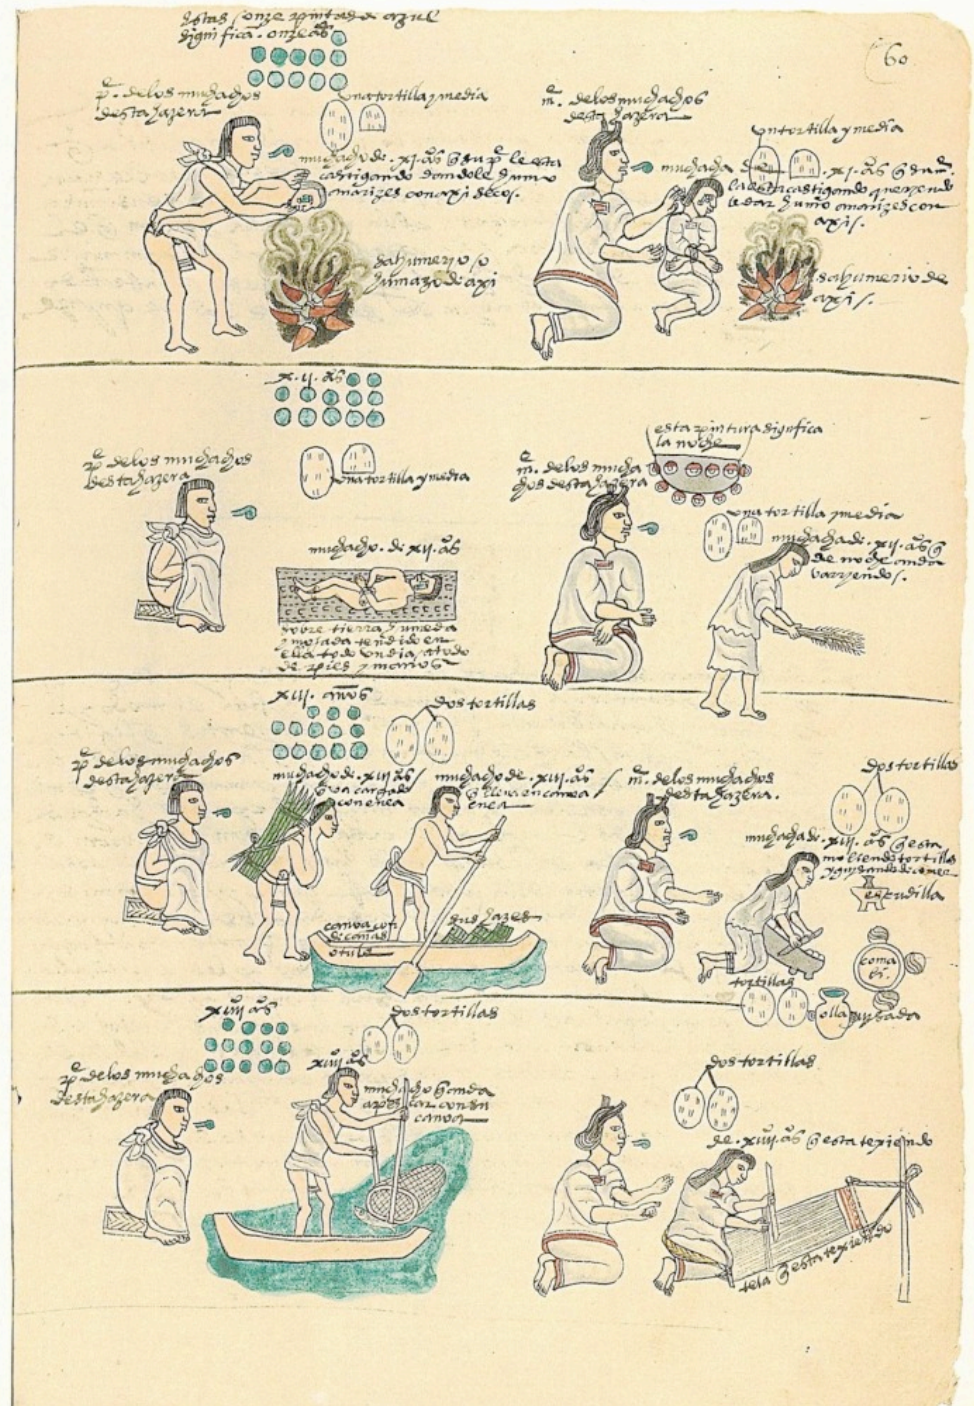 estas onze pintas de azul
significan onze años
60
pe. de los muchachos
desta hazera
una tortilla y media
muchacho de .xi. años que su pe. le esta
castigando dandole humo
a narizes con axi secos.
sahumerio o
humazo de axi
me. de los muchachos
desta hazera
un tortilla y media
muchacha de .xi. años que su me.
la esta castigando queriendo
le dar humo a narizes con
axi.
sahumerio de
axi.
x.ii. años
pe. de los muchachos
desta hazera
una tortilla y media
muchacho. de xii. años
sobre tierra humeda
y mojada tendido en
ella todo un dia atado
de pies y manos
esta pintura significa
la noche
me. de los mucha
chos desta hazera
una tortilla y media
muchacha de .xii. años que
de noche anda
varriendo.
xiii. años
dos tortillas
pe. de los muchachos
desta hazera
muchacho de .xiii. años
que va cargado
con enea
muchacho de .xiii. años
que lleva en canoa
enea
canoa con
sus hazes
de cañas
o tule
me. de los muchachos
desta hazera.
dos tortillas
muchacha de .xiii. años que esta
moliendo tortillas
y guisando de comer
escudilla
comali.
tortillas
olla guisada
xiiii años
dos tortillas
pe. de los muchachos
desta hazera
xiiii años
muchacho que anda
a pescar con su
canoa
dos tortillas
de .xiiii. años que esta texiendo
tela que esta texiendo